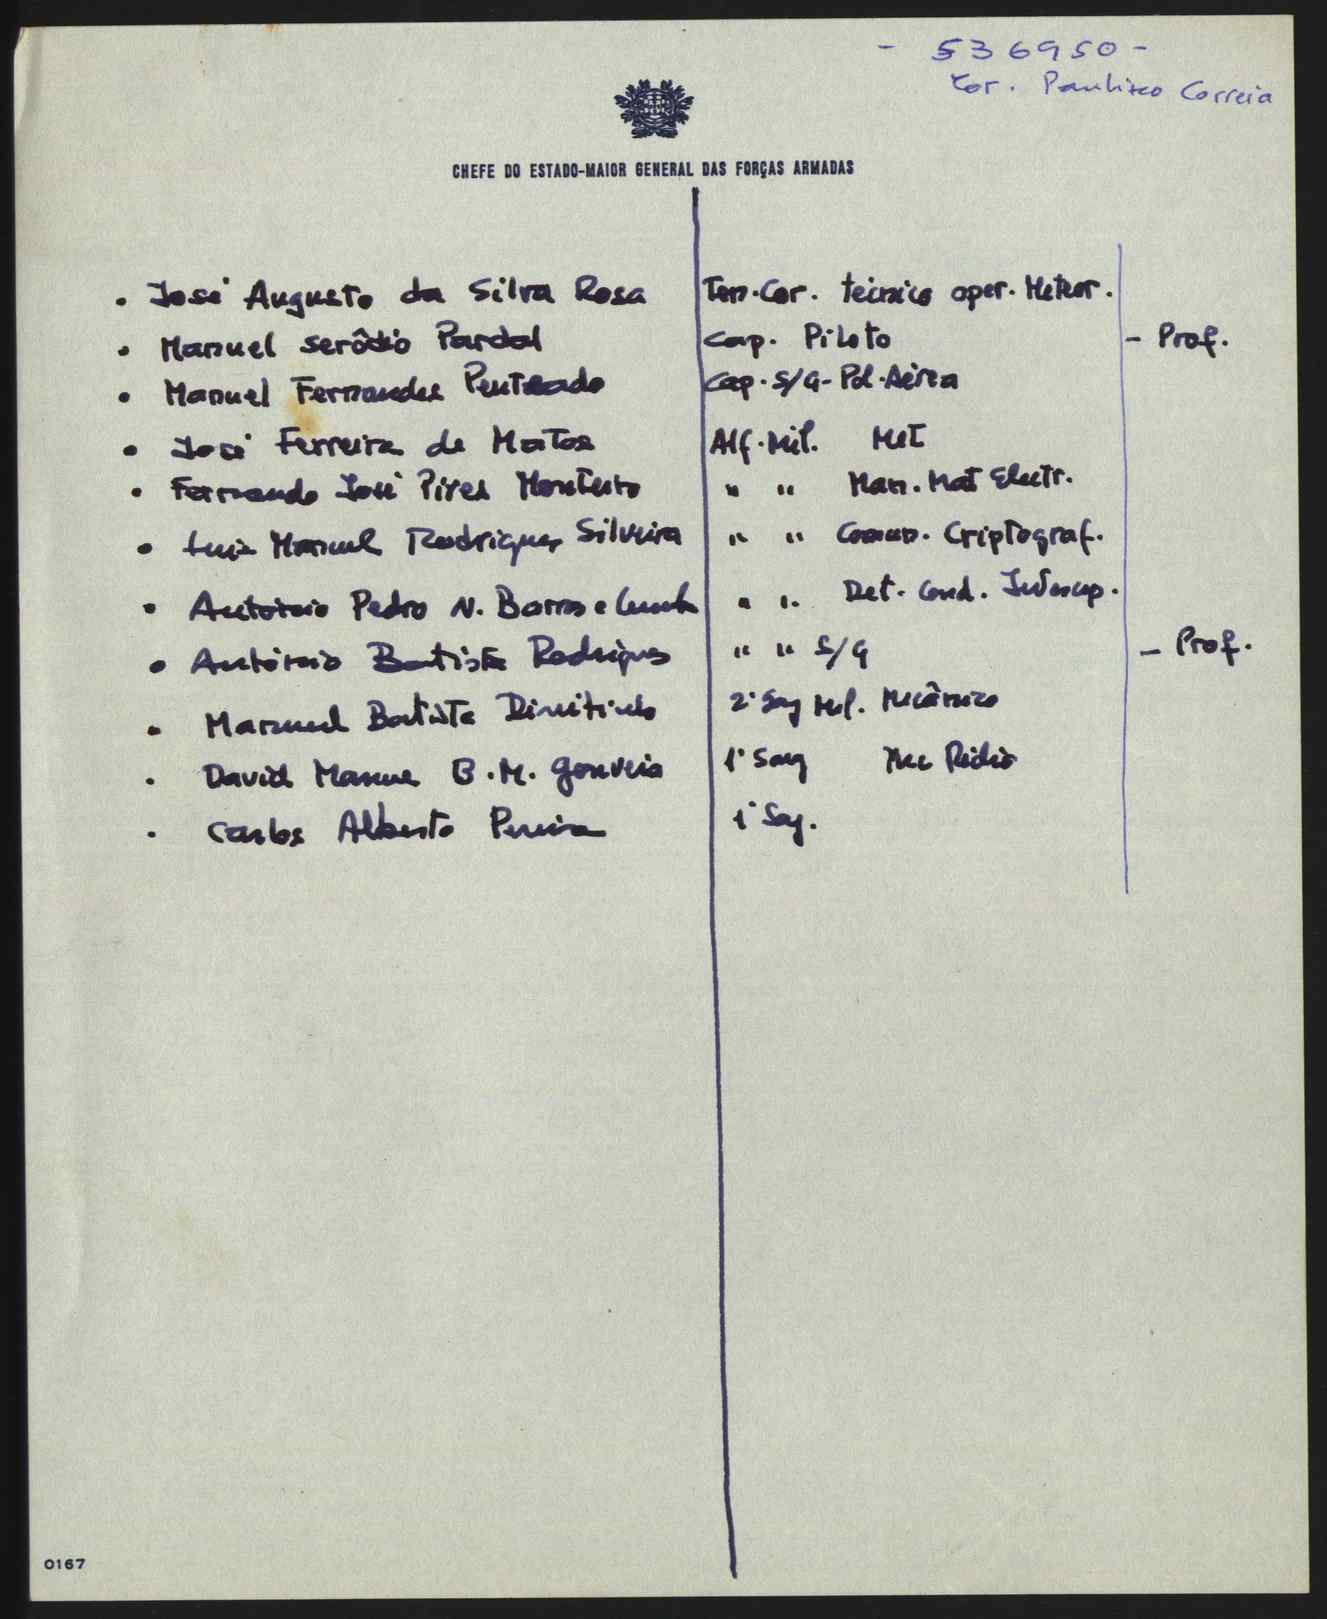 - 536950 -
Cor. Paulino Correia
CHEFE DO ESTADO-MAIOR GENERAL DAS FORÇAS ARMADAS
. José Augusto da Silva Rosa Ten.Cor. técnico oper. Meteor.
. Manuel Serôdio Pardal Cap. Piloto - Prof.
. Manuel Fernandes Penteado Cap. S/G - Pol. Aérea
. José Ferreira de Matos Alf. Mil. Met
. Fernando José Pires Monteiro " " Man. Mat Electr.
. Luis Manuel Rodrigues Silveira " " Comun. Criptograf.
. António Pedro N. Barros e Cunha " " Det. Cond. Intercep.
. António Batista Rodrigues " " S/G - Prof.
. Manuel Batista 2º Sarg Mil. Mecânico
. David Manuel B. M. Gouveia 1º Sarg Mec Rádio
. Carlos Alberto Pereira 1º Sarg.
0167